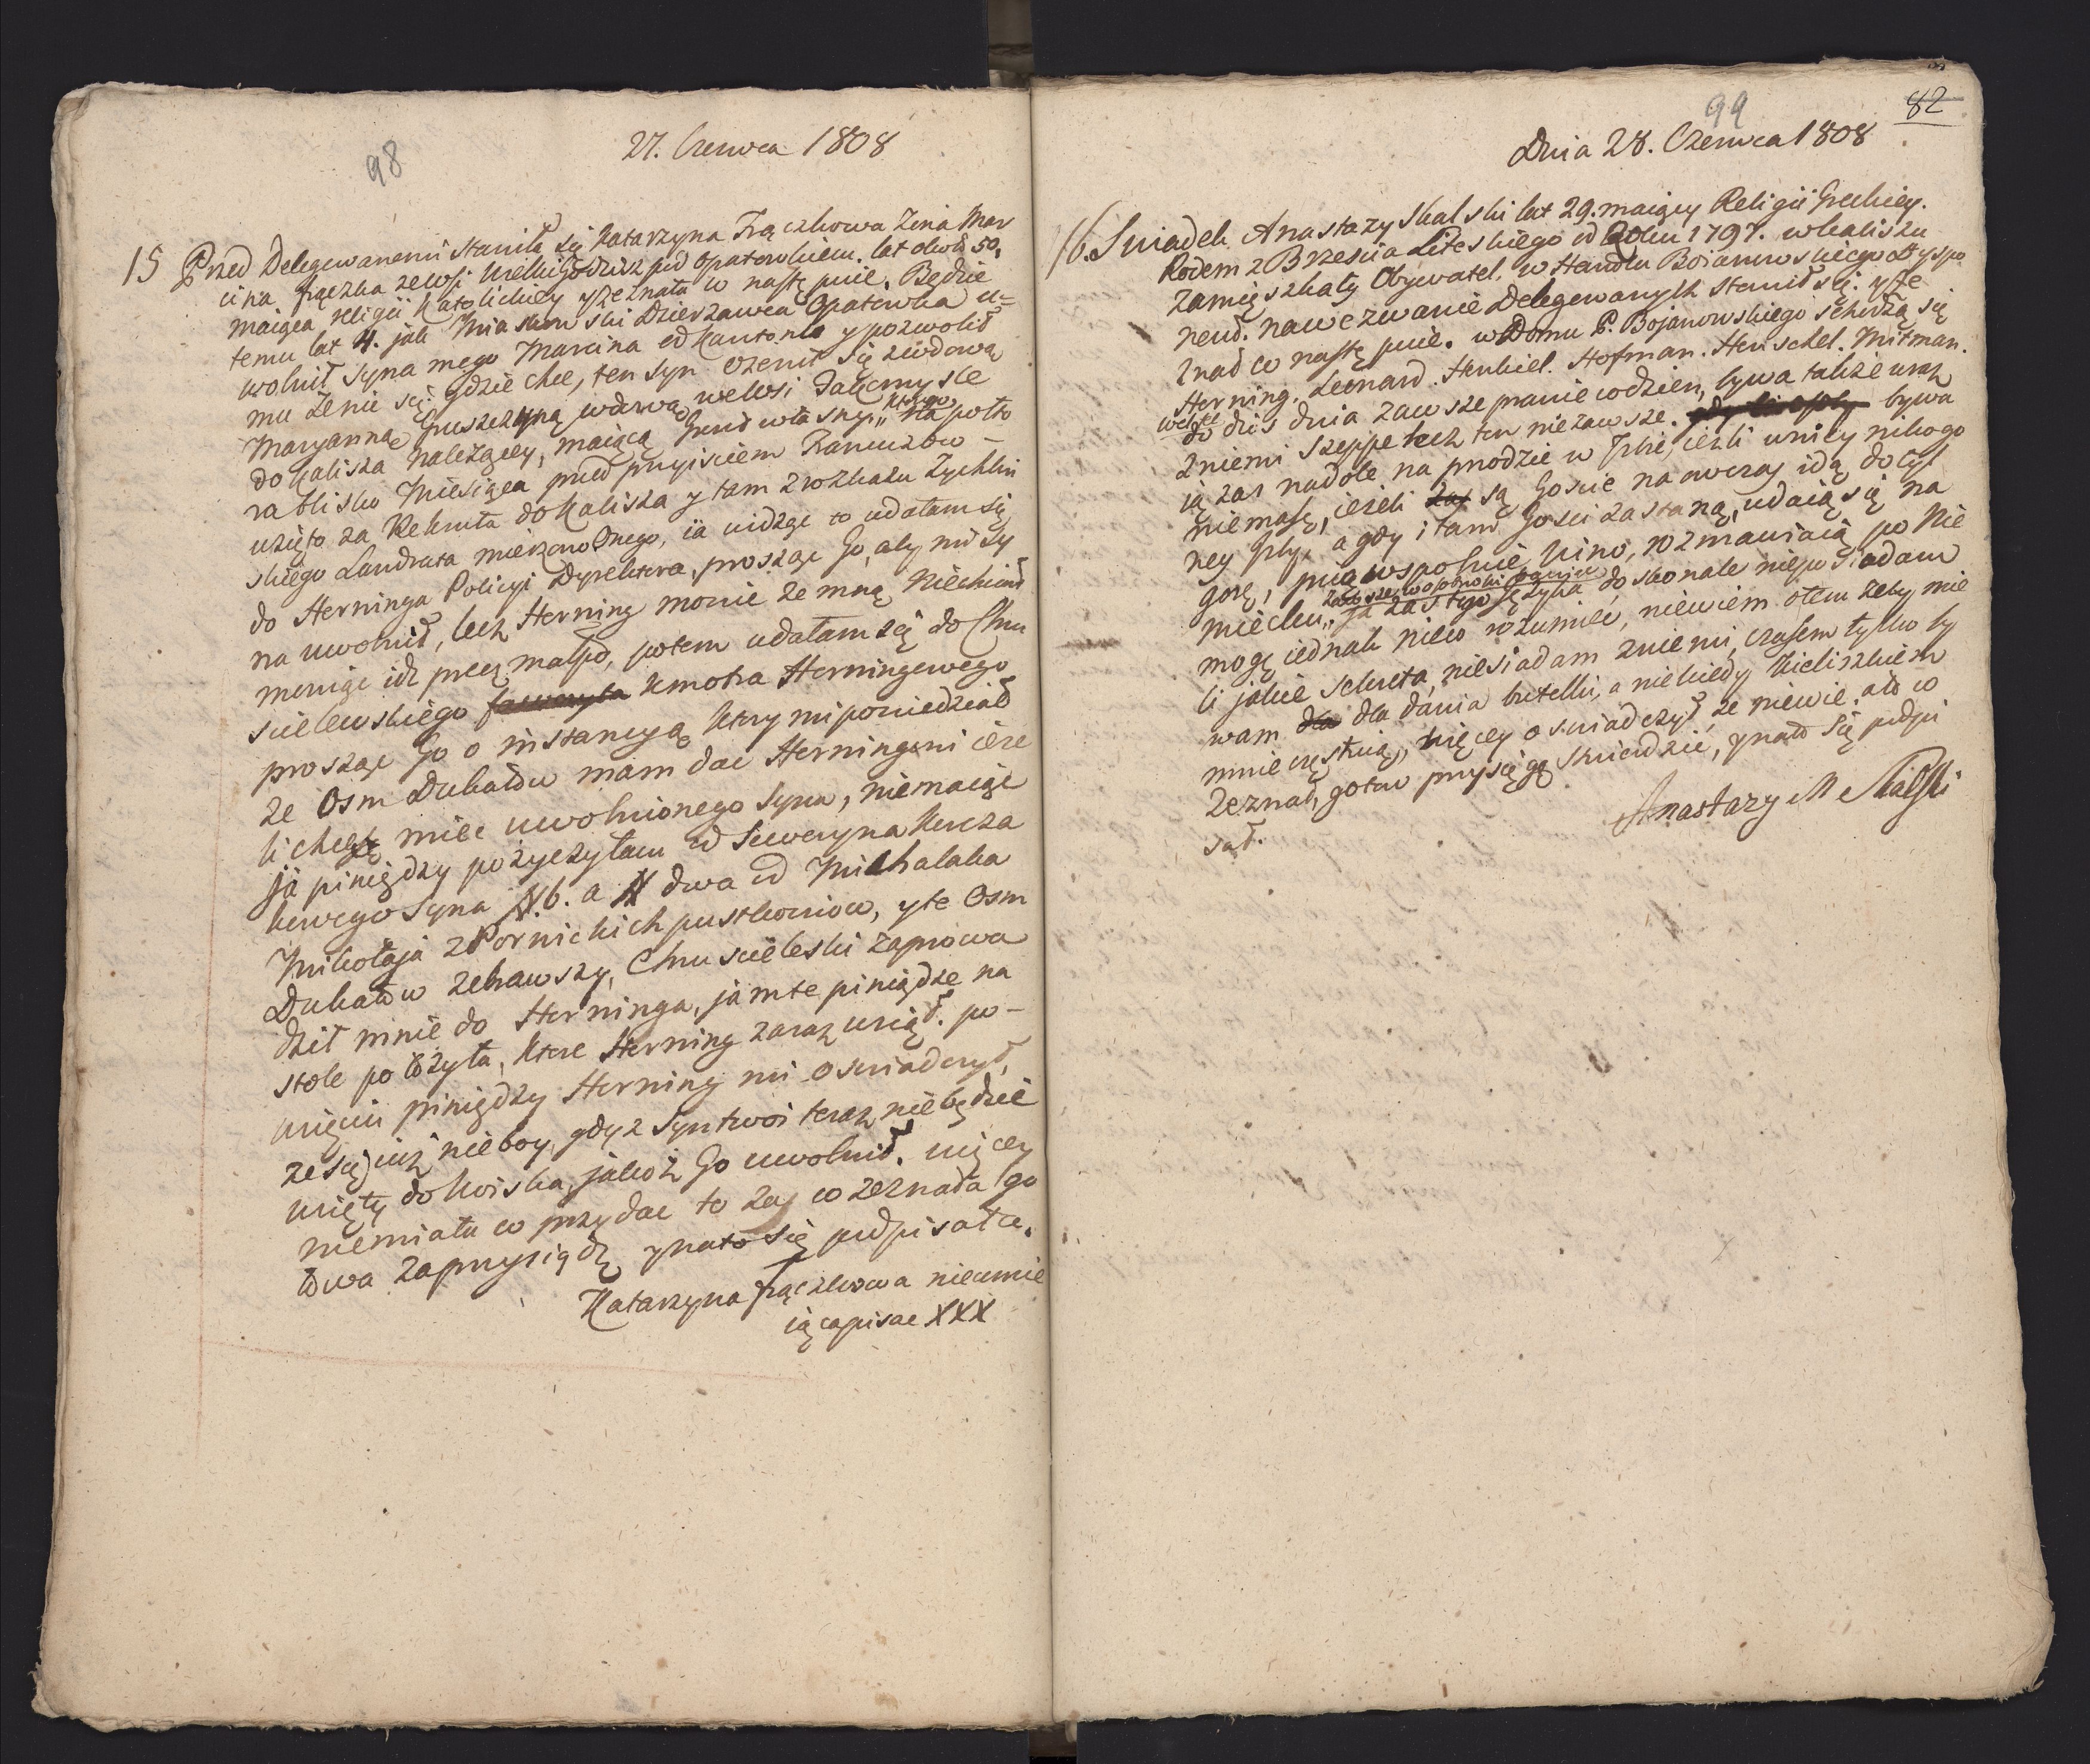 98
27. Czerwca 1808
15 Przed Delegowanemi Stawiła się Katarzyna Frączkowa Żena Mar
cina Frączka ze wsi pod Opatowkiem. lat około 50.
maiąca religii Katolickiey y zeznała w następuie. Będzie
temu lat 4. jak Dzierzawca Opatowka u=
wolnił Syna mego Marcina od Kantonu y pozwolił
mu Żenic się gdzie chce, ten Syn ożenił się z wdową
Maryanną wdową we wsi
do Kalisza należącey, maiącą Grunt własny, „ którego na poł to
ra blisko Miesiąca przed przyisciem Francuzow –
wzięto za Rekruta do Kalisza y tam z rozkazu Zychlin
skiego Landrata mierzono Onego, ia widząc to udałam się
do Herninga Policyi Dyrektora, prosząc Go, aby mi Sy
na uwolnił, lecz Herning mowic ze mną niechciał
mowiąc idź precz małpo, potem udałam się do Chmu
scielewskiego Kmotra Herningowego
prosząc Go o instancyą, ktory mi powiedział
ze Osm Dukatow mam dac Herningowi ieże
li chcę miec uwolnionego Syna, niemaiąc
ja pieniędzy pożyczyłam od Seweryna
kowego Syna # 6. a # dwa od Michalaka
Mikołaja z pustkowiow, y te Osm
Dukatow zebrawszy, Chmuscieleski zaprowa
dził mnie do Herninga, jam te piniądze na
stole położyła, ktore Herning zaraz wziął. po –
wzięciu piniędzy Herning mi oswiadczył,
ze się już nie boy, gdyż Syn twoi teraz nie będzie
wzięty do Woiska, jakoż Go uwolnił. więcey
niemiała co przydac to zas co zeznała go
towa zaprzysiądz y na to się podpisała.
Katarzyna Frączkowa nieumie
iąca pisac XXX
99
82
Dnia 28. Czerwca 1808
16. Swiadek Anastazy Skalski lat 29. maiący Religii Greckiey.
Rodem z Brzescia Liteskiego od Roku 1797. w Kaliszu
zamięszkały Obywatel. w Handlu Boianowskiego Dyspo
nent. na wezwanie Delegowanych stawił się. y ze
znał co następuie. w Domu P. Bojanowskiego schodzą się
Herning. Leonard. Henkiel. Hofman. Henschel. Mitman.
do dziś dnia zawsze prawie codzień, bywa także wraz
z niemi Szeppe lecz ten niezawsze. bywa
ią zas na dole na przodzie w Izbie, ieżli w niey nikogo
niemasz, ieżeli są Goscie na owczas idą do tyl
ney Izby, a gdy i tam Gosci zastaną, udaią się na
gorę, piią wspolnie Wino, rozmawiaią po Nie
miecku, „ ja zas tego Języka doskonale nieposiadam
mogę iednak nieco rozumieć, niewiem o tem zeby mie
li jakie sekreta, niesiadam z niemi, czasem tylko by
wam dla dania butelki, a niekiedy Kieliszkiem
mnie częstuią, więcey oswiadczył ze niewie. a to co
Zeznał, gotow przysięgą stwierdzic, y na to się podpi
sał.
Anastazy M Skalski